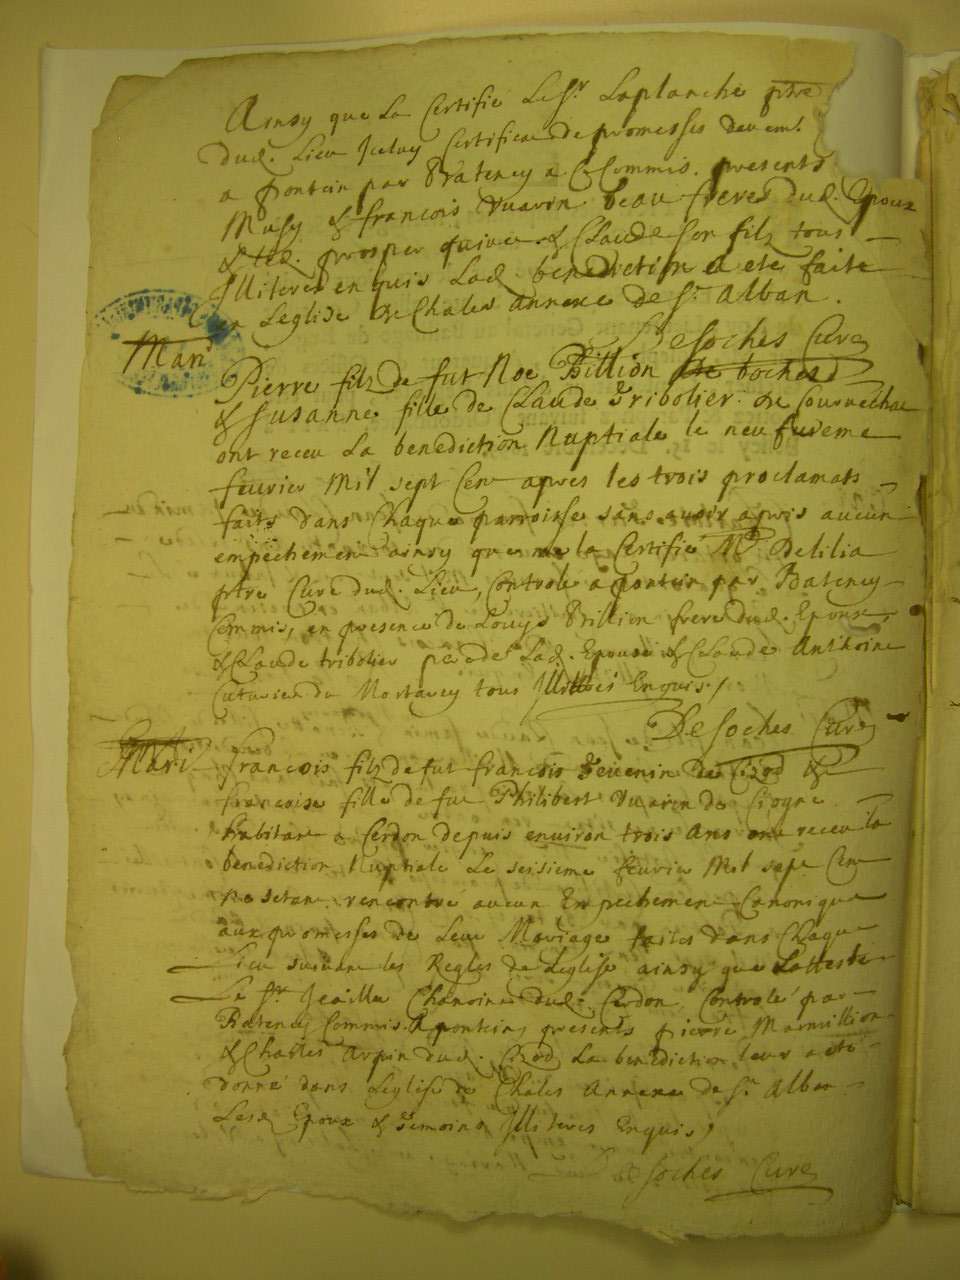 Ainsy que La Certifié Le Sr. Laplanche ptre
dud. Lieu Certificat de promesses
a pontein par Bateney Commis. presents
Musy & francois Vuarin beau freres dud. Epoux
& prosper & Claude son filz tous
Illiteres enquis Lad. benediction a ete faite
en Leglise de Chales annexe de St. Alban.
Desoches Cure
Mari
Pierre filz de fut Noe Billion de boches
& Susanne fille de Claude Tribolier de
ont receu La benediction Nuptiale le neufureme
feurier Mil sept Cen apres les trois proclamats
faits dans Chaque parroisse sans avoir apris aucun
empechemen ainsy que me la Certifié Mr. Delilia
ptre Cure dud. Lieu, Controlé a pontein par Bateney
Commis, en presence de Louys Billion frere dud. Epoux,
& Claude tribolier pere de Lad. Epouse & Claude Anthoine
de Mortarey tous Illiteres Enquis.
Desoches Cure
Mari
francois filz de fut francois Tevenin de Cizod &
francoise fille de fut Philibert Vuarin de Ciogne
habitans a Cerdon depuis environ trois Ans ont receu la
benediction Nuptiale Le seisieme feurier Mil sept Cen
ne setant rencontre aucun Empechemen Canonique
aux promesses de Leur Mariage faites dans Chaque
Lieu suivant les Regles de Leglise ainsy que Latteste
Le Sr. Chanoine dud. Cerdon, Controlé par
Bateney Commis A pontein, presents pierre Marmillion
& Charles Arpin dud. Cizod, La benediction leur a été
donné dans Leglise de Chales Annexe de St. Alban
Lesd. Epoux & Temoins Illiteres Enquis,
Desoches Cure